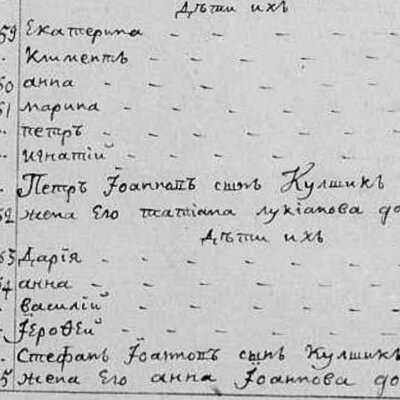 Дѣти ихъ
59 Екатерина
Климентъ
60 анна
61 марина
петръ
игнатій
Петръ Іоанновъ сынъ Кулшикъ
62 жена его татіана лукіанова до
Дѣти ихъ
63 Дарія
64 анна
василій
Іероѳей
Стефанъ Іоанновъ сынъ Кулшикъ
5 жена его анна Іоаннова до